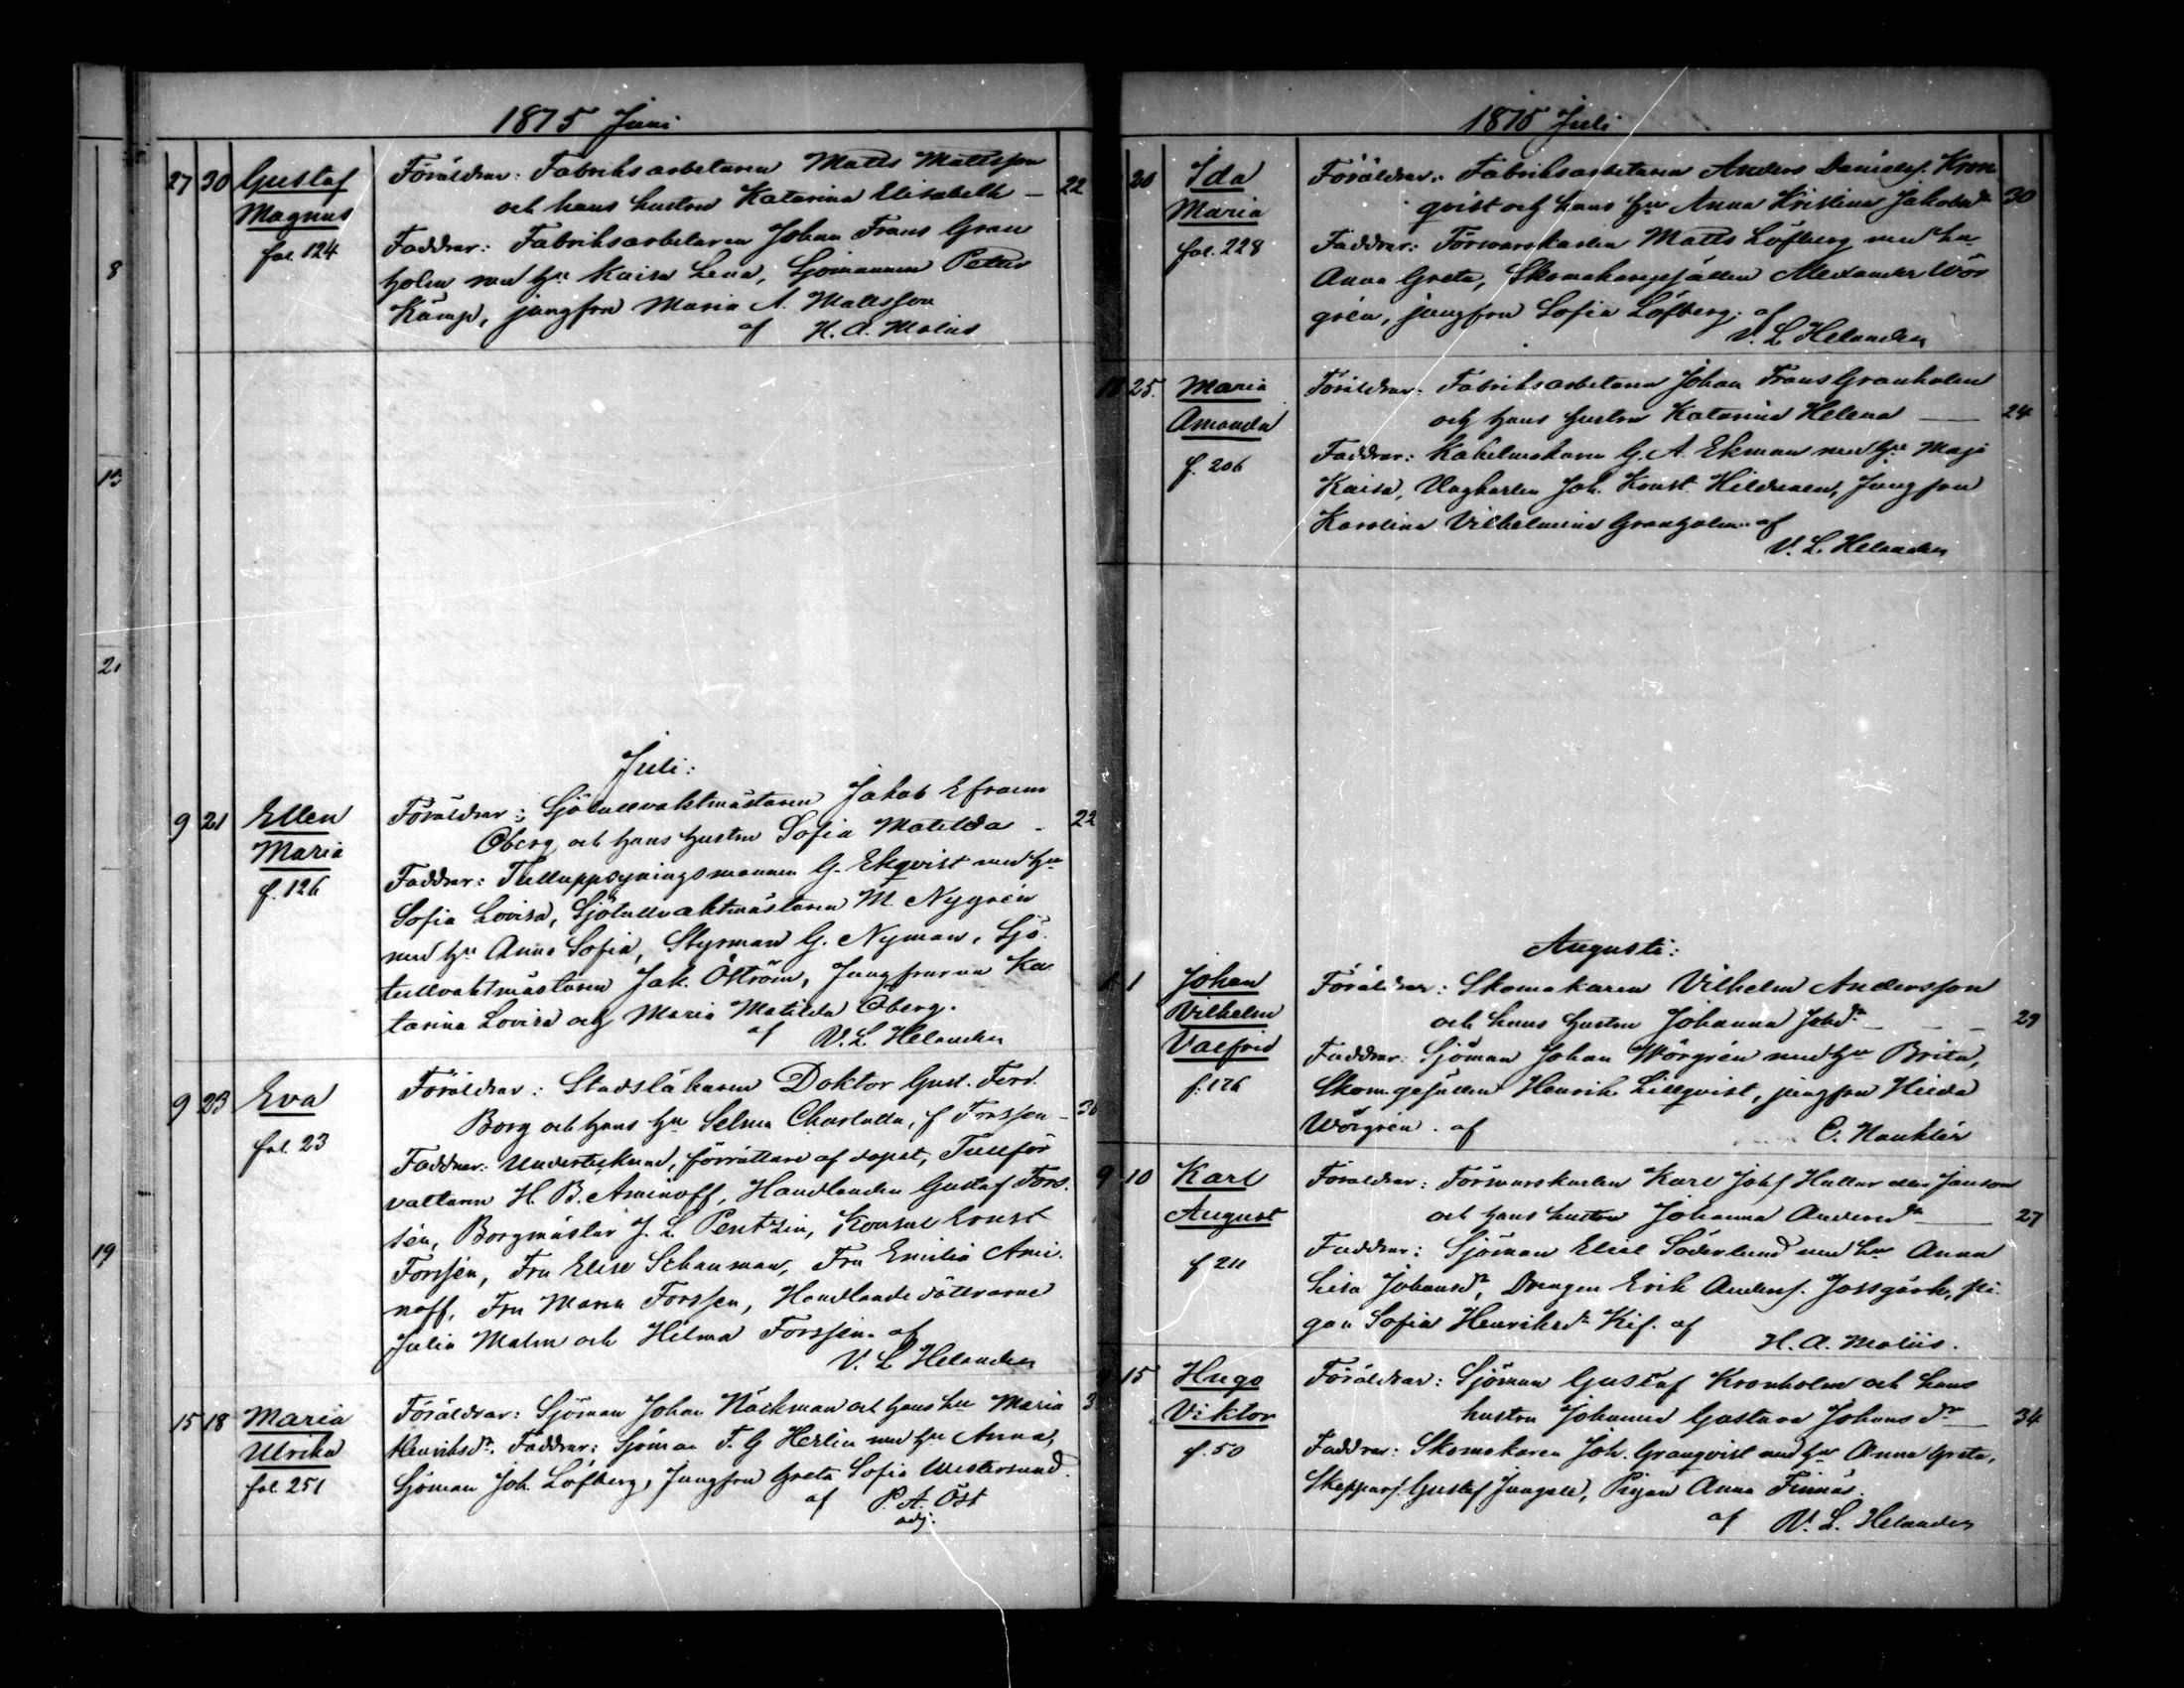 1875 Juni
27 30 Gustaf Föräldrar: Fabriksarbetaren Matts Mattsson
Magnus och hans hustru Katarina Elisabeth — 22
fol. 124 Faddrar: Fabriksarbetaren Johan Frans Gran
holm med hu Kaisa Lena, Sjömannen Petter
Kämp, jungfru Maria A. Mattsson
af H. A. Malins
Juli:
9 21 Ellen Föräldrar: Sjötullvaktmästaren Jakob Efraim
Maria Öberg och hans hustru Sofia Matilda - 22
f. 126 Faddrar: Tulluppsyningsmannen G. Ekqvist med hu
Sofia Lovisa, Sjötullvaktmästaren M. Nygrén
med hu Anna Sofia, Styrman G. Nyman, Sjö-
tullvaktmästaren Jak. Öström, Jungfruarna Ka
tarina Lovisa och Maria Matilda Öberg.
af V. L. Helander
9 23 Eva Föräldrar: Stadsläkaren Doktor Gust. Ferd.
fol. 23 Borg och hans hu Selma Charlotta, f. Forssen -
Faddrar: Undertecknad, förrättare af dopet, Tullför
valtaren H. B. Aminoff, Handlanden Gustaf Fors-
sén, Borgmästar J. L. Pentzin, Konsul Ernst
Forssén, Fru Elise Schauman, Fru Emilia Ami-
noff, Fru Maria Forssen, Handlande döttrarne
Julia Malm och Hilma Forssén. af
V. L. Helander
15 18 Maria Föräldrar: Sjöman Johan Näckman och hans hu Maria 3
Ulrika Henriksdr. Faddrar: Sjöman F. G Herlin med hu Anna,
fol. 251 Sjöman Joh. Löfberg, Jungfru Greta Sofia Westersund.
af P. A. Öst
adj.
8
13
2
19
1875 Juli
20 Ida Föräldrar: Fabriksarbetaren Anders Danielss. Kron
Maria qvist och hans hu Anna Kristina Jakobsdr 30
fol. 228 Faddrar: Förswarskarlen Matts Löfberg med hu
Anna Greta, Skomakargesällen Alexander Wör
grén, jungfru Sofia Löfberg. af
V. L Helander
18 25. Maria Föräldrar: Fabriksarbetaren Johan Frans Granholm
Amanda och hans hustru Katarina Helena — 24
f. 206 Faddrar: Kakelmakaren G. A. Ekman med hu Maja
Kaisa, Joh. Konst. Jungfru
Karolina Vilhelmina Granholm. af
V. L. Helander
Augusti:
1 Johan Föräldrar: Skomakaren Vilhelm Andersson
Vilhelm och hans hustru Johanna Johdr — 29
Valfrid Faddrar: Sjöman Johan Wörgrén med hu Brita,
f. 176 Skom.gesällen Henrik Lillqvist, jungfru Hilda
Wörgrén. af C. Nauklér
9 10 Karl Föräldrar: Förswarskarlen Karl Johs Hallar eller Janson
August och hans hustru Johanna Andersdr — 27
f 211 Faddrar: Sjöman Elial Söderlund med hu Anna
Lisa Johansdr, Drengen Erik Anderss. Jossgärk, pi-
gan Sofia Henriksdr Kif. af
H. A. Malins.
15 Hugo Föräldrar: Sjöman Gustaf Kronholm och hans
Viktor hustru Johanna Gustava Johansdr — 34
f. 50 Faddrar: Skomakaren Joh. Granqvist med hu Anna Greta,
Skeppars. Gustaf Jungell, Pigan Anna Finnäs.
af V. L. Helander